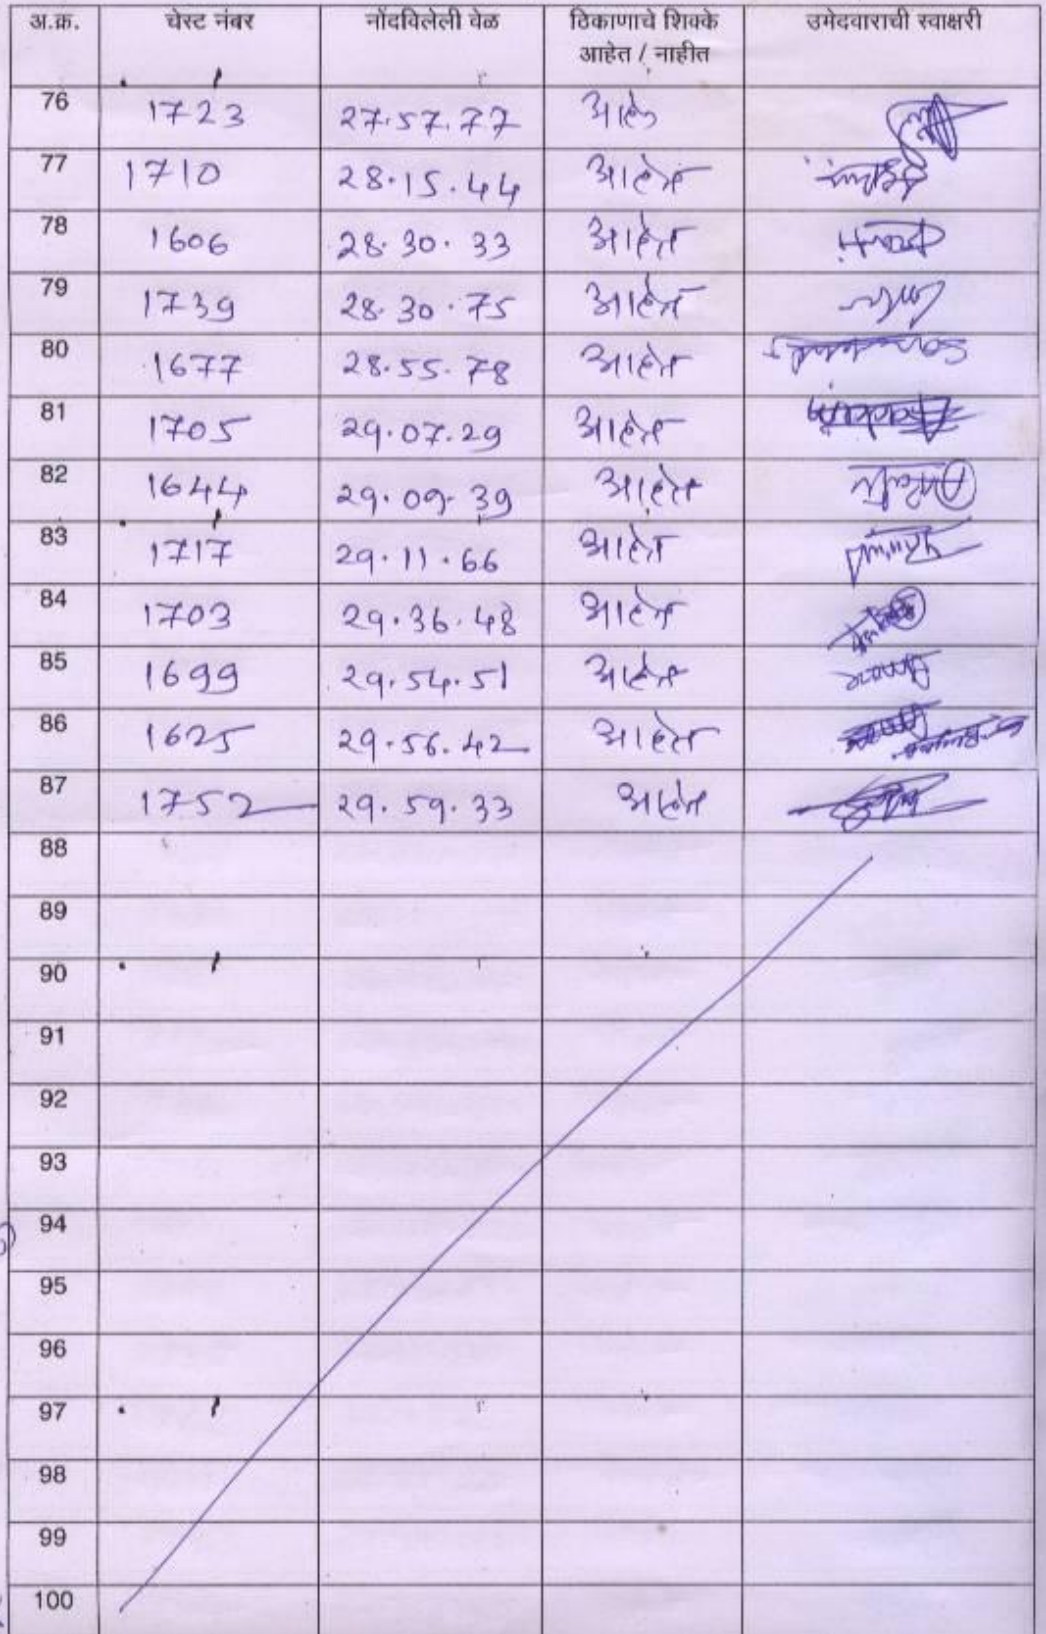 अ.क्र. चेस्ट नंबर नोंदविलेली वेळ ठिकाणाचे शिक्के आहेत / नाहीत उमेदवाराची स्वाक्षरी
76 1723 27.57.77 आहेत
77 1710 28.15.44 आहेत
78 1606 28.30.33 आहेत
79 1739 28.30.75 आहेत
80 1677 28.55.78 आहेत
81 1705 29.07.29 आहेत
82 1644 29.09.39 आहेत
83 1717 29.11.66 आहेत
84 1703 29.36.48 आहेत
85 1699 29.54.51 आहेत
86 1625 29.56.42 आहेत
87 1752 29.59.33 आहेत
88
89
90
91
92
93
94
95
96
97
98
99
100